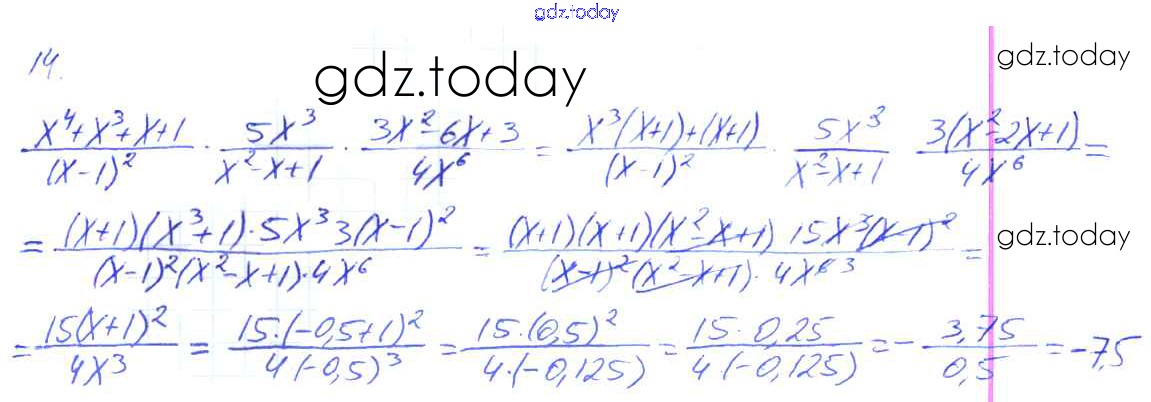 gdz.today
14.
gdz.today
gdz.today
(x⁴+x³+x+1)/(x-1)² · 5x³/(x²-x+1) · (3x²-6x+3)/(4x⁶) = (x³(x+1)+(x+1))/(x-1)² · 5x³/(x²-x+1) 3(x²-2x+1)/(4x⁶) =
= ((x+1)(x³+1)·5x³3(x-1)²)/((x-1)²(x²-x+1)·4x⁶) = ((x+1)(x+1)(x²-x+1) 15x³(x-1)²)/((x-1)²(x²-x+1)·4x⁶ ³) =
gdz.today
= 15(x+1)²/(4x³) = 15·(-0,5+1)²/(4(-0,5)³) = 15·(0,5)²/(4·(-0,125)) = 15·0,25/(4(-0,125)) = - 3,75/0,5 = -7,5